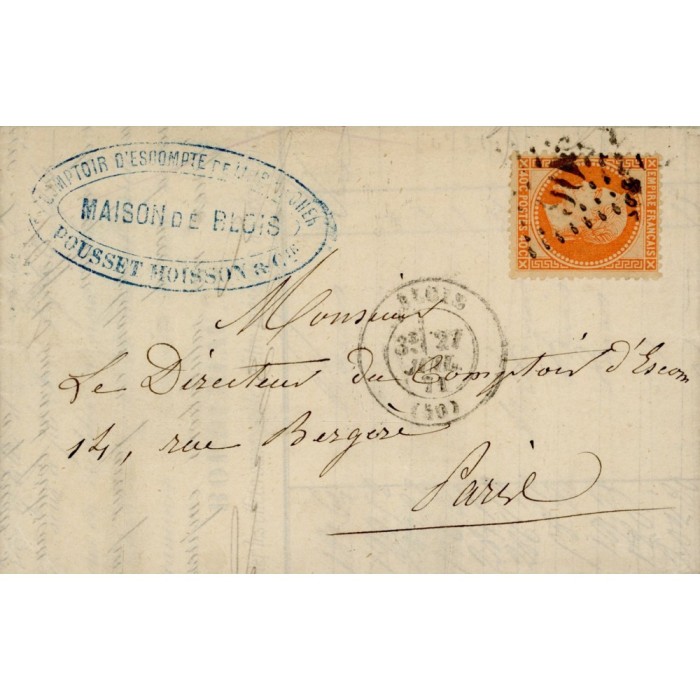 COMPTOIR D'ESCOMPTE DE LOIR & CHER
MAISON DE BLOIS
POUSSET MOISSON & Cie
EMPIRE FRANÇAIS
POSTES
BLOIS
3e 27
JUIL.
71
(40)
Monsieur
Le Directeur du Comptoir d'Escom
14, rue Bergère
Paris